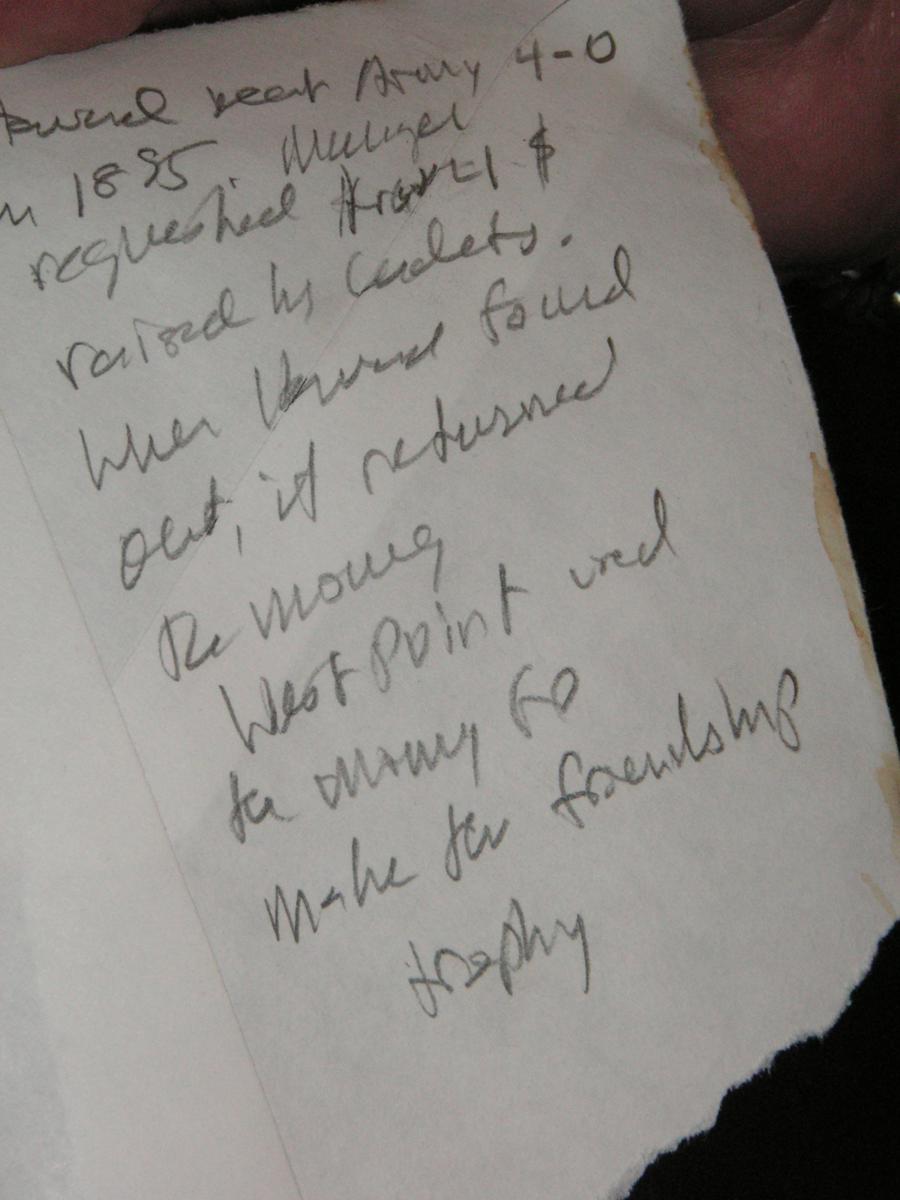 Harvard beat Army 4-0
in 1895. Manager
requested travel $
raised by Cadets.
When Harvard found
out, it returned
the money
West Point used
the money to
make the friendship
trophy